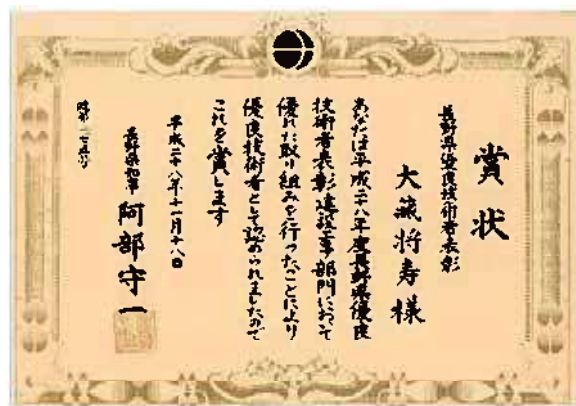 賞状
長野県優良技術者表彰
大蔵将寿様
あなたは平成二八年度長野県優良
技術者表彰建設工事部門において
優れた取り組みを行ったことにより
優良技術者として認められましたので
これを賞します
平成二八年十一月十八日
長野県知事 阿部守一